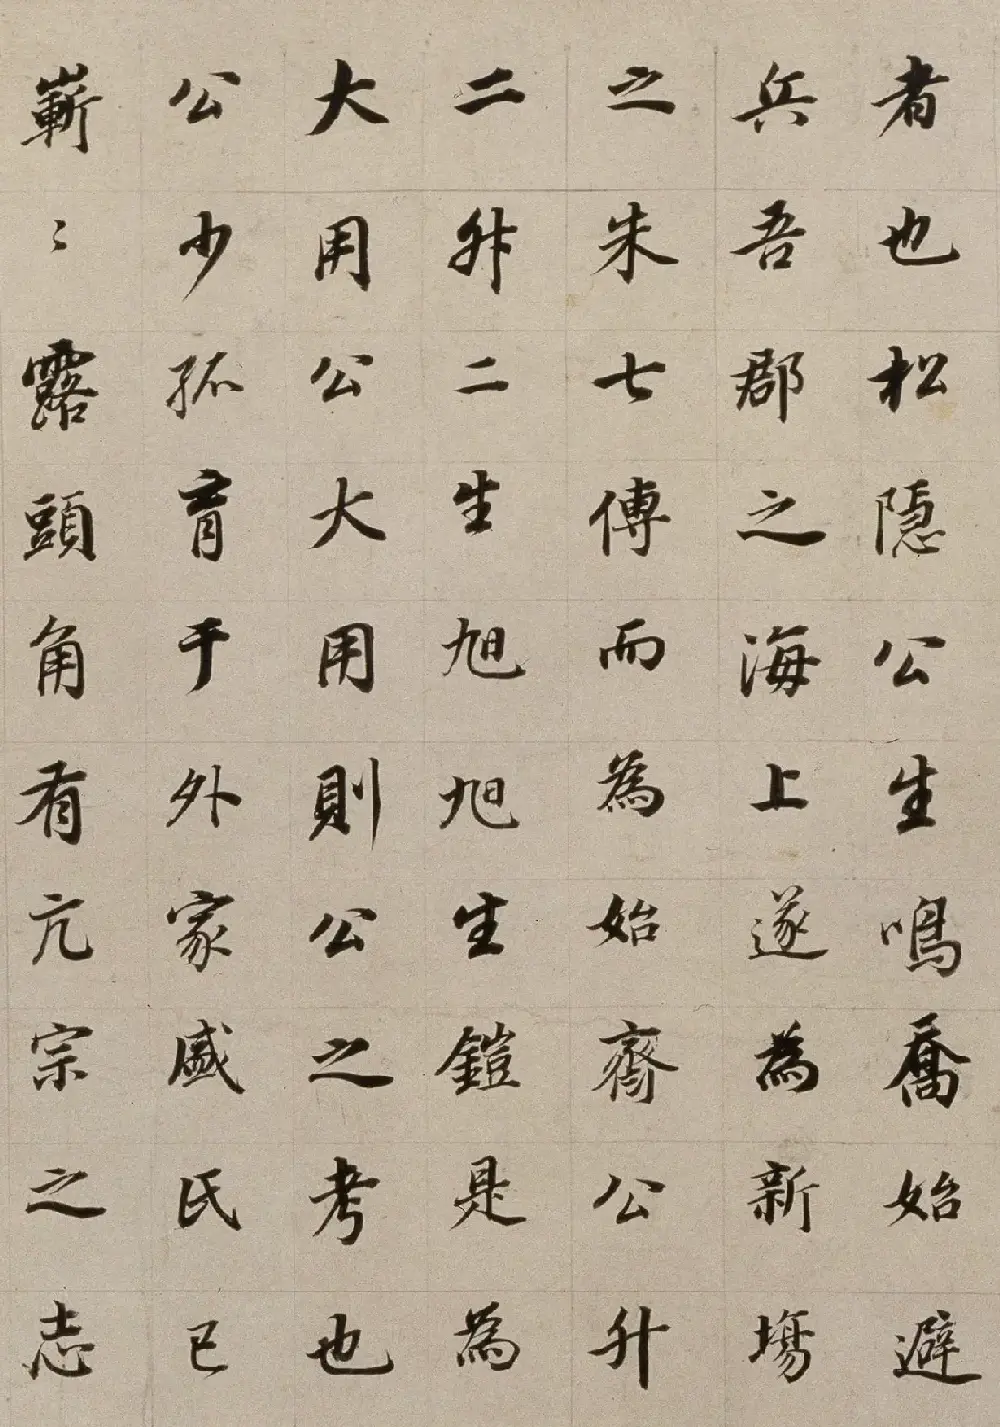 者也松隱公生鳴喬始避
兵吾郡之海上遂為新場
之朱七傳而為始齋公升
二升二生旭旭生鎧是為
大用公大用則公之考也
公少孤育于外家盛氏已
嶄〻露頭角有亢宗之志